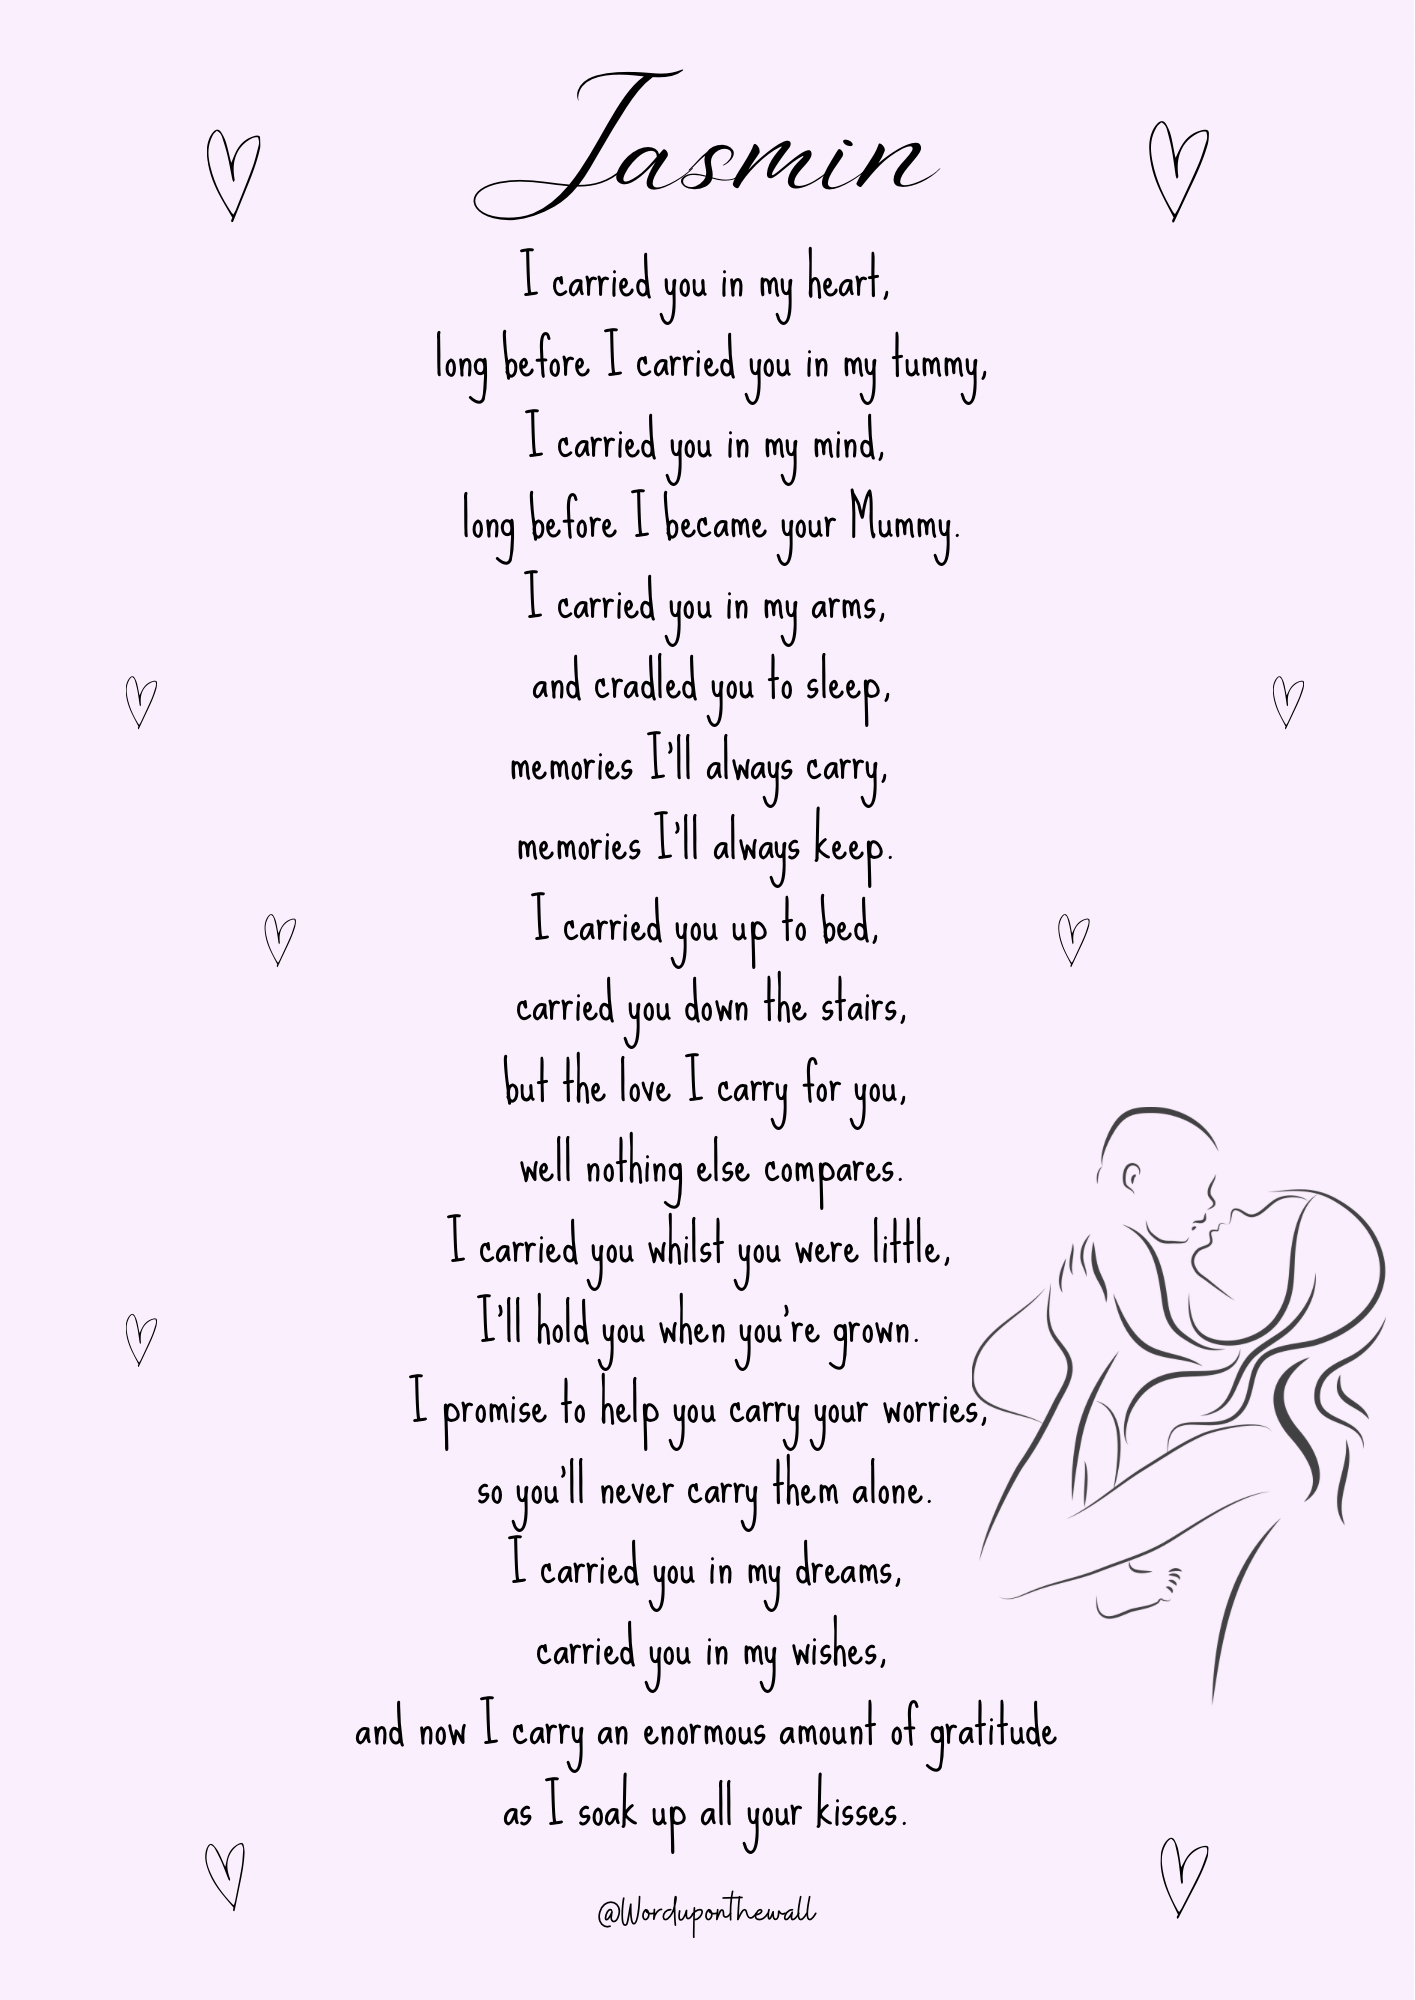 Jasmin
I carried you in my heart,
long before I carried you in my tummy,
I carried you in my mind,
long before I became your Mummy.
I carried you in my arms,
and cradled you to sleep,
memories I'll always carry,
memories I'll always keep.
I carried you up to bed,
carried you down the stairs,
but the love I carry for you,
well nothing else compares.
I carried you whilst you were little,
I'll hold you when you're grown.
I promise to help you carry your worries,
so you'll never carry them alone.
I carried you in my dreams,
carried you in my wishes,
and now I carry an enormous amount of gratitude
as I soak up all your kisses.
@Worduponthewall